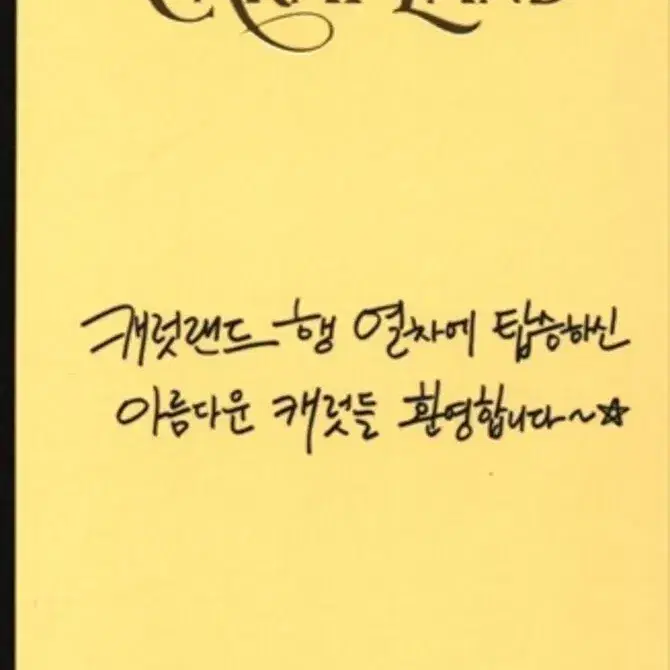 CARAT LAND
캐럿랜드 행 열차에 탑승하신
아름다운 캐럿들 환영합니다~☆